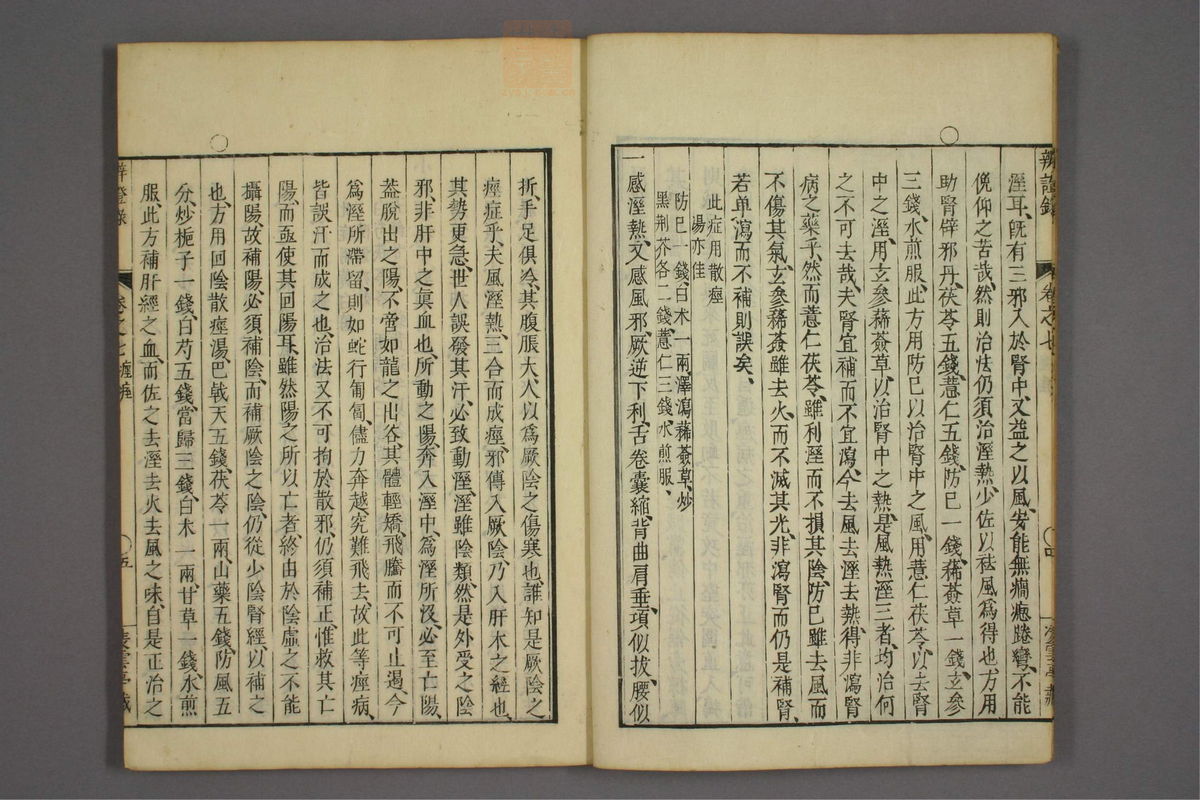 溼耳、旣有三邪入於腎中、又益之以風、安能無癇瘛踡攣、不能
俛仰之苦哉、然則治法仍須治溼熱、少佐以祛風爲得也、方用
助腎辟邪丹、茯苓五錢、薏仁五錢、防巳一錢、豨薟草一錢、玄參
三錢、水煎服、此方用防巳以治腎中之風、用薏仁茯苓、以去腎
中之溼、用玄參豨薟草、以治腎中之熱、是風熱溼三者、均治何
之不可去哉、夫腎宜補而不宜瀉、今去風去溼去熱、得非瀉腎
病之藥乎、然而薏仁茯苓、雖利溼而不損其陰、防巳雖去風而
不傷其氣、玄參豨薟雖去火、而不滅其光、非瀉腎而仍是補腎、
若单瀉而不補則誤矣、
此症用散痙
湯亦佳
防巳一錢、白朮一兩、澤瀉豨薟草、炒
黑荆芥各二錢、薏仁三錢、水煎服、
一感溼熱、又感風邪、厥逆下利、舌卷囊縮、背曲肩垂、項似拔、腰似
辨證錄
卷之七
折、手足俱冷、其腹脹大、人以爲厥陰之傷寒也、誰知是厥陰之
痙症乎、夫風溼熱、三合而成痙、邪傳入厥陰、乃入肝木之經也、
其勢更急、世人誤發其汗、必致動溼、溼雖陰類、然是外受之陰
邪、非肝中之眞血也、所動之陽、奔入溼中、爲溼所沒、必至亡陽、
葢脫出之陽、不啻如龍之出谷、其體輕矯、飛騰而不可止遏、今
爲溼所滯留、則如蛇行匍匐、儘力奔越、究難飛去、故此等痙病、
皆誤汗而成之也、治法又不可拘於散邪、仍須補正、惟救其亡
陽、而亟使其回陽耳、雖然陽之所以亡者、終由於陰虛之不能
攝陽、故補陽必須補陰、而補厥陰之陰、仍從少陰腎經、以補之
也、方用回陰散痙湯、巴戟天五錢、茯苓一兩、山藥五錢、防風五
分、炒梔子一錢、白芍五錢、當歸三錢、白朮一兩、甘草一錢、水煎
服、此方補肝經之血、而佐之去溼去火去風之味、自是正治之
卷之七
五